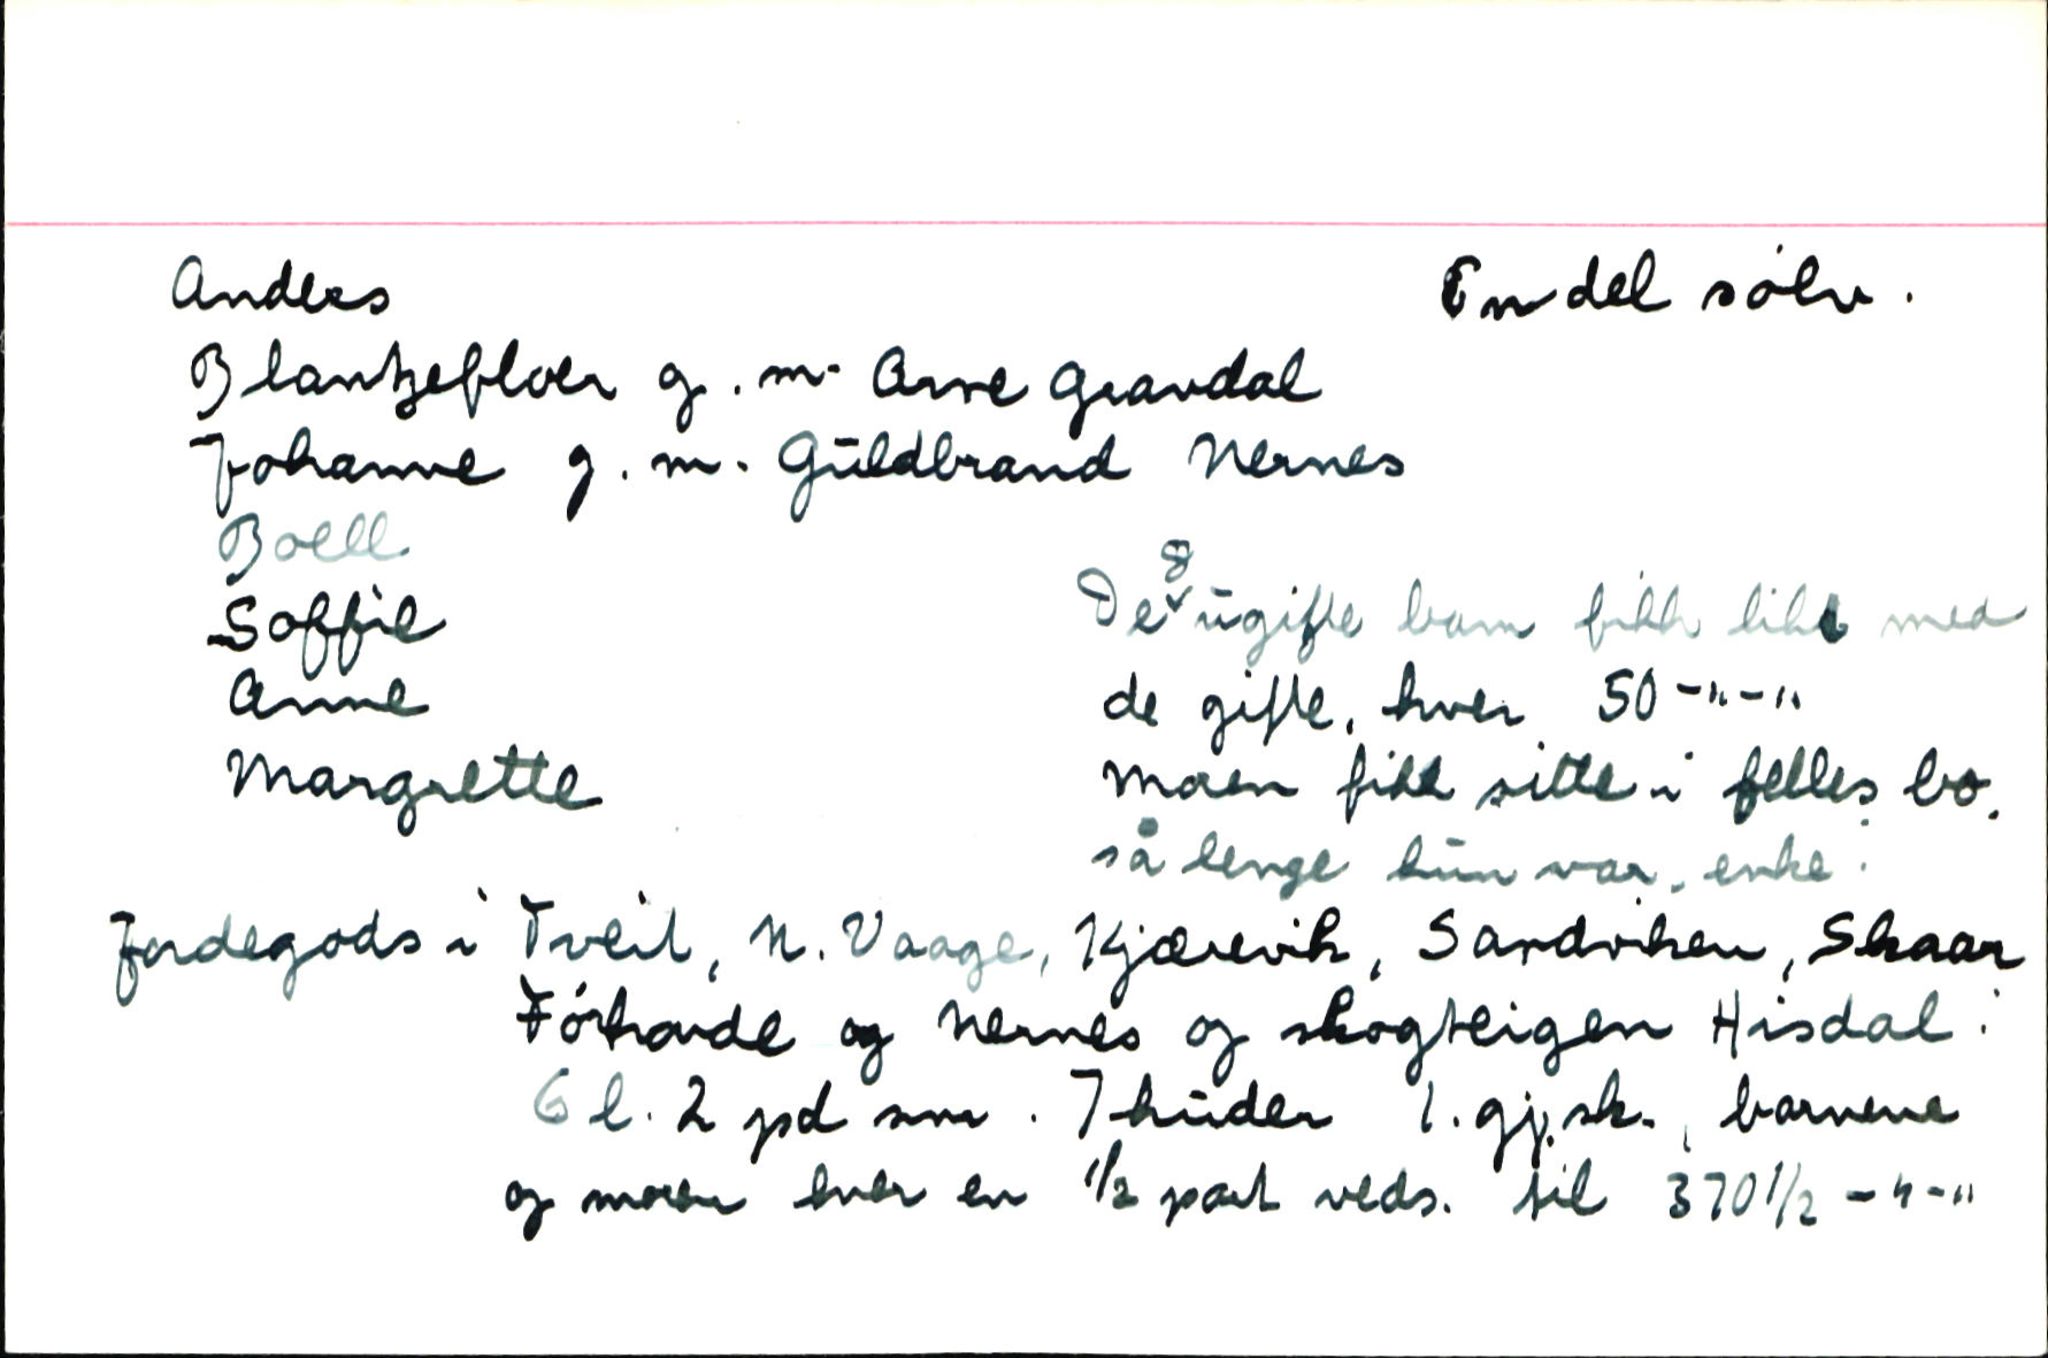 Anders En del sølv.
Blantzefloer g. m. Arne Gravdal
Johanne g. m. Guldbrand Nernes
Boell
Soffie De 8 ugifte barn fikk likt med
Anne de gifte, hver 50 -"-"
Margrette Moren fikk sitte i felles bo
så lenge hun var enke.
Jordegods i Tveit, N. Vaage, Kjærevik, Sandviken, Skaar
og Nernes og skogteigen Hisdal:
6 l. 2 pd sm. 7 huder 1. gj.sk., barnene
og moren hver en 1/2 part veds. til 370 1/2 -"-"